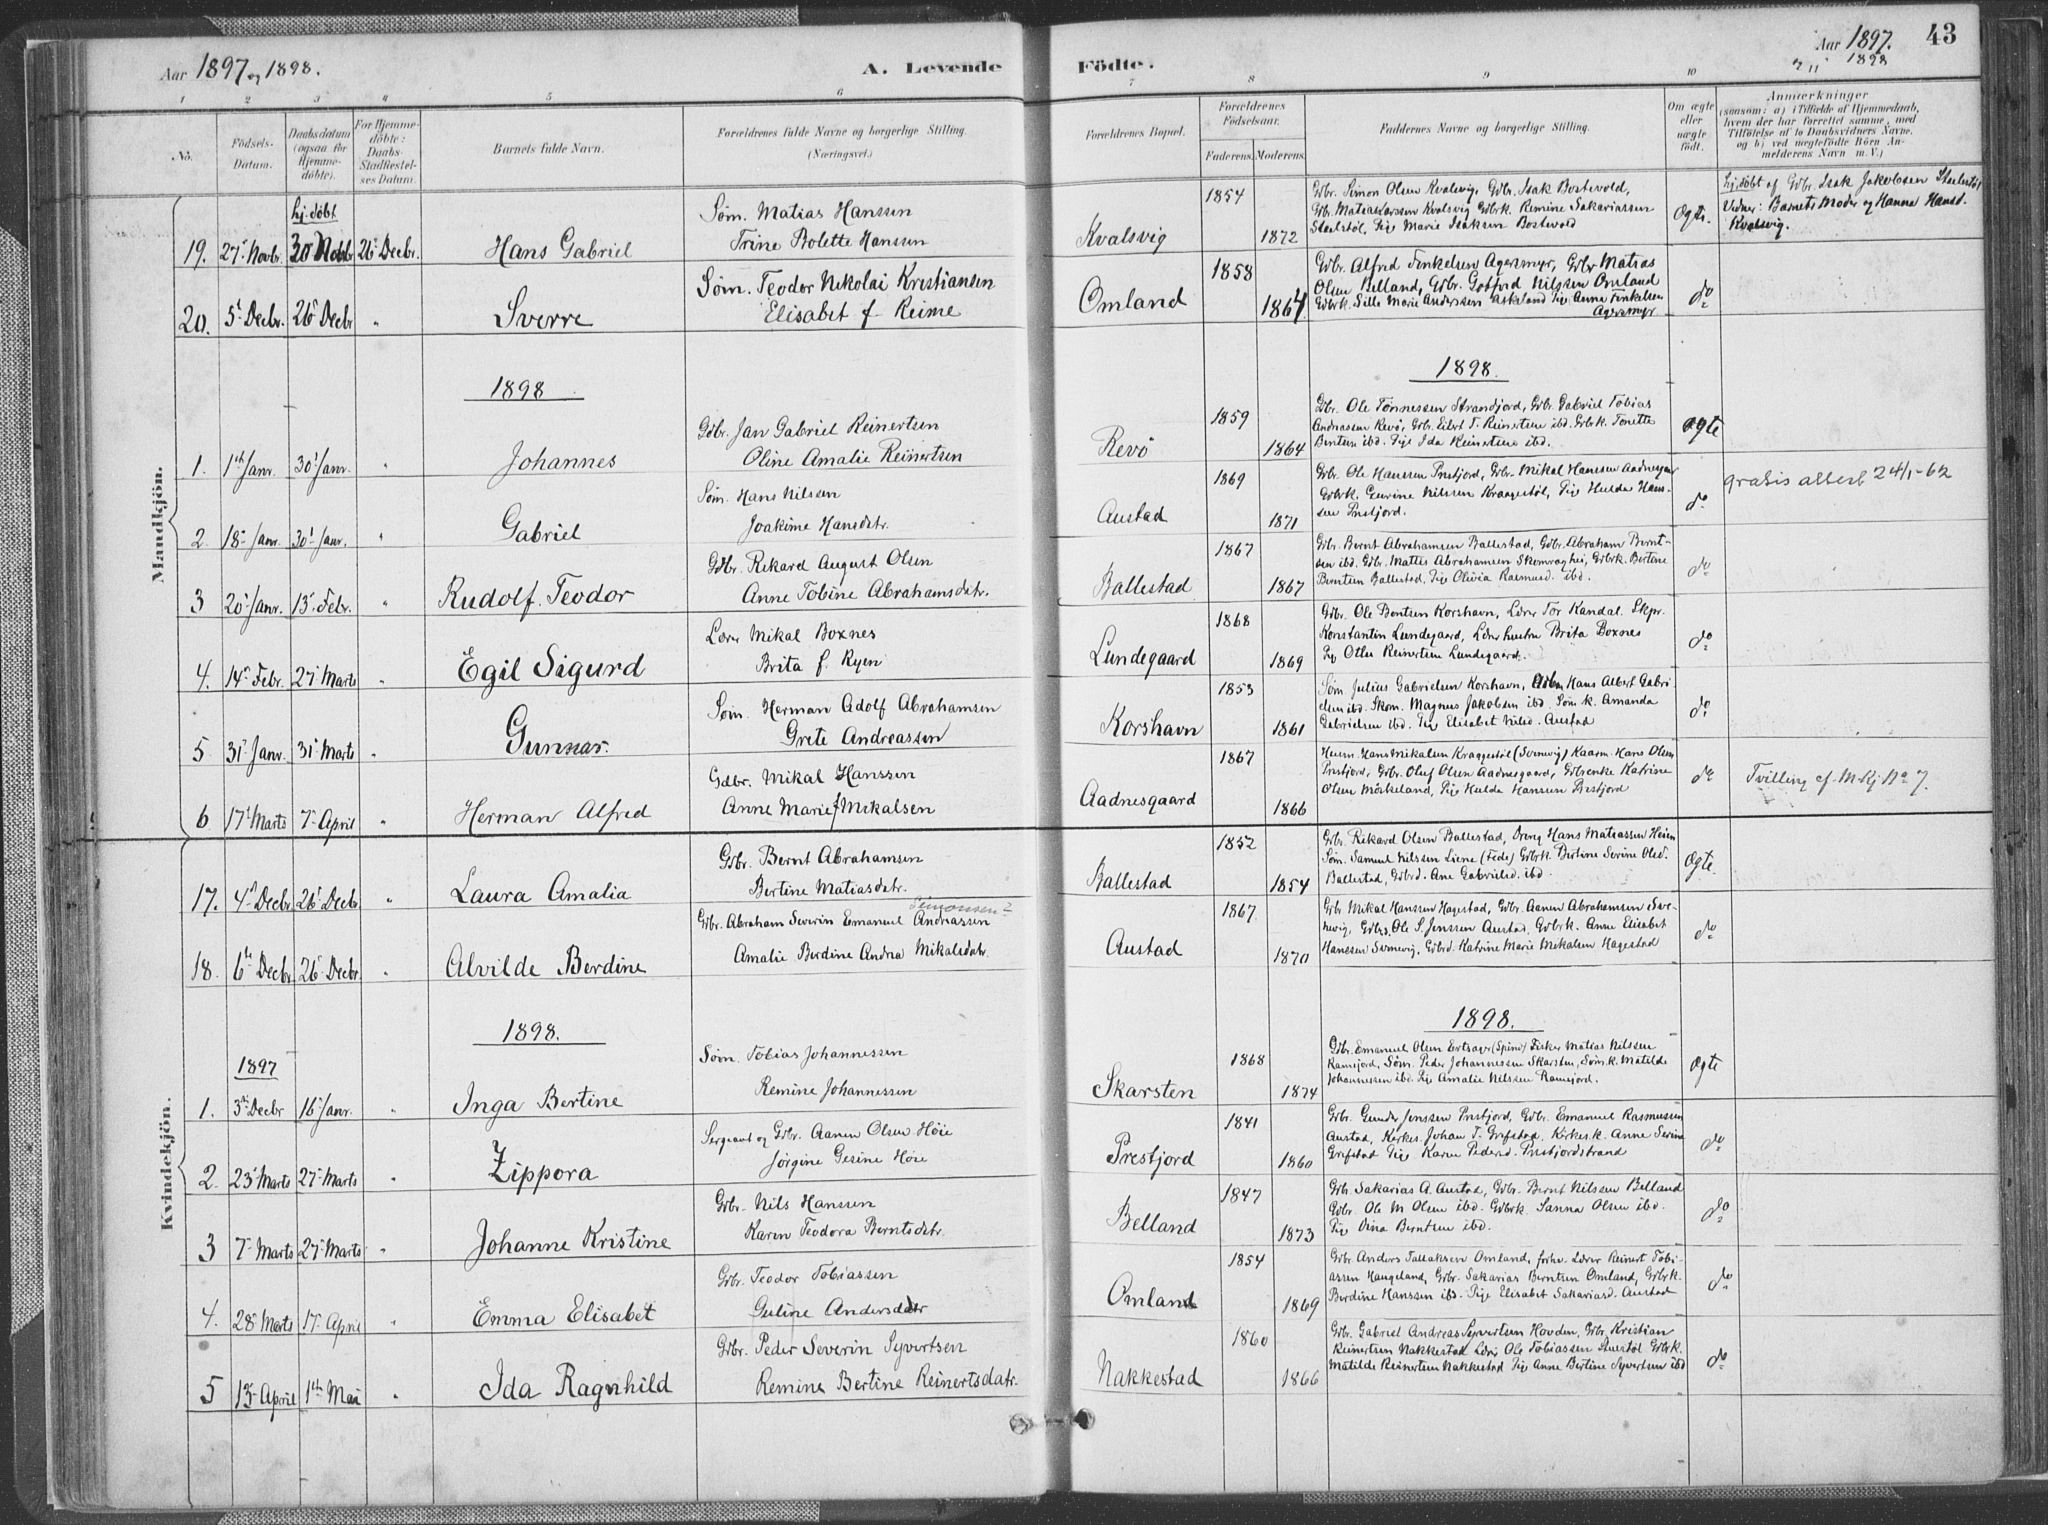 Aar 1897 og 1898.
A. Levende Födte.
Aar 1897.
1898
43
1 2 3 4 5 6 7 8 9 10 11
No.
Födsels-
Datum.
Daabsdatum
(ogsaa for
Hjemme-
döbte).
For Hjemme-
döbte:
Daabs-
Stadfæstel-
ses Datum.
Barnets fulde Navn.
Forældrenes fulde Navne og borgerlige Stilling.
(Næringsvei.)
Forældrenes Bopæl.
Forældrenes
Födselsaar.
Faderens. Moderens.
Faddernes Navne og borgerlige Stilling.
Om ægte
eller
uægte
födt.
Anmærkninger
(saasom: a) i Tilfælde af Hjemmedaab,
hvem der har forrettet samme, med
Tilföielse af to Daabsvidners Navne,
og b) ved uægtefödte Börn An-
melderens Navn m. V.)
Mandkjön.
19. 27 Novbr. hj. döbt 30 Novbr 26 Decbr. Hans Gabriel
Søm. Matias Hanssen
Trine Bolette Hanssen
Kvalsvig 1854 1872
Gbr. Simon Olsen Kvalsvig, Gbr. Isak Bostevold,
Gbr. Matias Larssen Kvalsvig Gbrk. Remine Sakariassen
Stælstøl, Pige Marie Isaksen Bostevold
Ægte.
hj. döbt af Gbr. Isak Jakobsen Stælestøl
Vidner: Barnets Moder og Hanne Hansd.
Kvalsvig.
20. 5 Decbr. 26 Decbr " Sverre
Søm. Teodor Nikolai Kristiansen
Elisabet f. Reime
Omland 1858 1864
Gbr. Alfred Tinkelsen Agersmyr, Gbr Matias
Olsen Belland, Gbr. Gotford Nilssen Omland
Gbrk. Sille Marie Anderssen Askeland Pige Anne Tinkelsen
Agersmyr
do
1898
1898.
1. 1ste Janr. 30 Janr. " Johannes
Gdbr. Jan Gabriel Reinertsen
Oline Amalie Reinertsen
Revö 1859 1864
Gbr. Ole Tönnessen Strandfjord, Gbr. Gabriel Tobias
Andreassen Revö, Gbr. Eilert T. Reinertsen ibd. Gbrk. Tonette
Berntsen ibd. Pige Ida Reinertsen ibd.
Ægte
2. 18 Janr. 30 Janr. " Gabriel
Søm. Hans Nilssen
Joakime Hansdtr.
Austad 1869 1871
Gbr. Ole Hanssen Prestfjord, Gbr. Mikal Hanssen Aadnesgaar
Gbrk. Gurine Nilssen Kraagestøl, Pige Hulda Hans-
sen Prestfjord.
do
gratis attest 24/1-62
3 20 Janr. 13 Febr. " Rudolf Teodor
Gdbr. Rikard August Olsen
Anne Tobine Abrahamsdtr.
Ballestad 1867 1867
Gbr. Bernt Abrahamsen Ballestad, Gbr. Abraham Bernt-
sen ibd. Gbr. Mattis Abrahamsen Skomraghei, Gbrk. Bertine
Berntsen Ballestad, Pige Olivia Rasmusd. ibd.
do
4. 14 Febr. 27 Marts " Egil Sigurd
Lærer Mikal Boxnes
Brita f. Ryen
Lundegaard 1868 1869
Gbr. Ole Berntsen Korshavn, Lærer Tor Kandal. Skpr.
Konstantin Lundegaard, Lærerhustru Brita Boxnes
Pige Otlu Reinertsen Lundegaard.
do
5 31 Janr. 31 Marts " Gunnar.
Søm. Herman Adolf Abrahamsen
Grete Andreassen
Korshavn 1853 1861
Søm Julius Gabrielsen Korshavn, Hans Albert Gabri-
elsen ibd. Skom. Magnus Jakobsen ibd Søm k. Amanda
Gabrielsen ibd. Pige Elisabet Nilsd. Austad
do
6 17 Marts 7 April " Herman Alfred
Gdbr. Mikal Hanssen
Anne Marie f Mikalsen
Aadnesgaard 1867 1866
Hans Mikalsen Kraagestøl (Svenevig) Kaarm. Hans Olsen
Prestfjord, Gbr. Oluf Olsen Aadnesgaard, Gbrenke Katrine
Olsen Mörkeland, Pige Hulda Hanssen Prestfjord
do
Tvilling cf. M. Kj No 7.
Kvindekjön.
17. 4 Decbr 26 Decbr " Laura Amalia
Gbr. Bernt Abrahamsen
Bertine Matiasdtr.
Ballestad 1852 1854
Gbr. Rikard Olsen Ballestad, Dreng Hans Matiassen Heien
Søm. Samuel Nilssen Liene (Fede) Gbrk. Bertine Serine Olsd.
Ballestad, Gbrd. Ane Gabrielsd. ibd.
Ægte.
18. 6te Decbr 26 Decbr " Alvilde Berdine
Simonsen?
Gbr. Abraham Severin Emanuel Andreassen
Amalie Berdine Andrea Mikalsdtr.
Austad 1867 1870
Gbr Mikal Hanssen Hagestad, Gbr. Aanen Abrahamsen Sve-
nevig, Gbrs. Ole S. Jenssen Austad, Gbrk. Anne Elisabet
Hanssen Svenevig, Gbrd. Katrine Marie Mikalsen Hagestad
do
1898.
1898.
1897
1. 3die Decbr 16 Janr. " Inga Bertine
Søm. Tobias Johannessen
Remine Johannessen
Skarsten 1868 1874
Gbr. Emanuel Olsen Ertsager (Spind) Fisker Matias Nilssen
Ramefjord, Søm. Peder Johannessen Skarsten, Søm.k. Matilde
Johannessen ibd. Pige Amalie Nilssen Ramefjord.
Ægte
2. 23 Marts 27 Marts " Zippora
Sergeant og Gbr. Aanen Olsen Höie
Jørgine Gesine Höie
Prestfjord 1841 1860
Gbr. Gunder Jenssen Prestfjord, Gbr. Emanuel Rasmussen
Austad, Kirkes. Johan T. Grefstad, Kirkes.k. Anne Serine
Grefstad Pige Karen Pedersd. Prestfjordstrand
do
3 7 Marts 27 Marts " Johanne Kristine
Gbr. Nils Hanssen
Karen Teodora Berntsdtr.
Belland 1847 1873
Gbr. Sakarias A. Austad, Gbr. Bernt Nilssen Belland
Gbr. Ole M Olsen ibd. Gbrk. Sanna Olsen ibd.
Pige Dina Berntsen ibd.
do
4. 28 Marts 17 April " Emma Elisabet
Gbr. Teodor Tobiassen
Guline Andersdatr
Omland 1854 1869
Gbr. Anders Tallaksen Omland, forhv. Lærer Reinert Tobi-
assen Haugeland, Gbr. Sakarias Berntsen Omland, Gbrk.
Berdine Hanssen ibd. Pige Elisabet Sakariasd. Austad
do
5 13 April 1ste Mai " Ida Ragnhild
Gbr. Peder Severin Syvertsen
Remine Bertine Reinertsdatr.
Nakkestad 1860 1866
Gbr. Gabriel Andreas Syvertsen Hovden, Gbr. Kristian
Reinertsen Nakkestad Ole Tobiassen Gbrk.
Matilde Reinertsen Nakkestad Pige Anne Bertine Syvertsen ibd
do